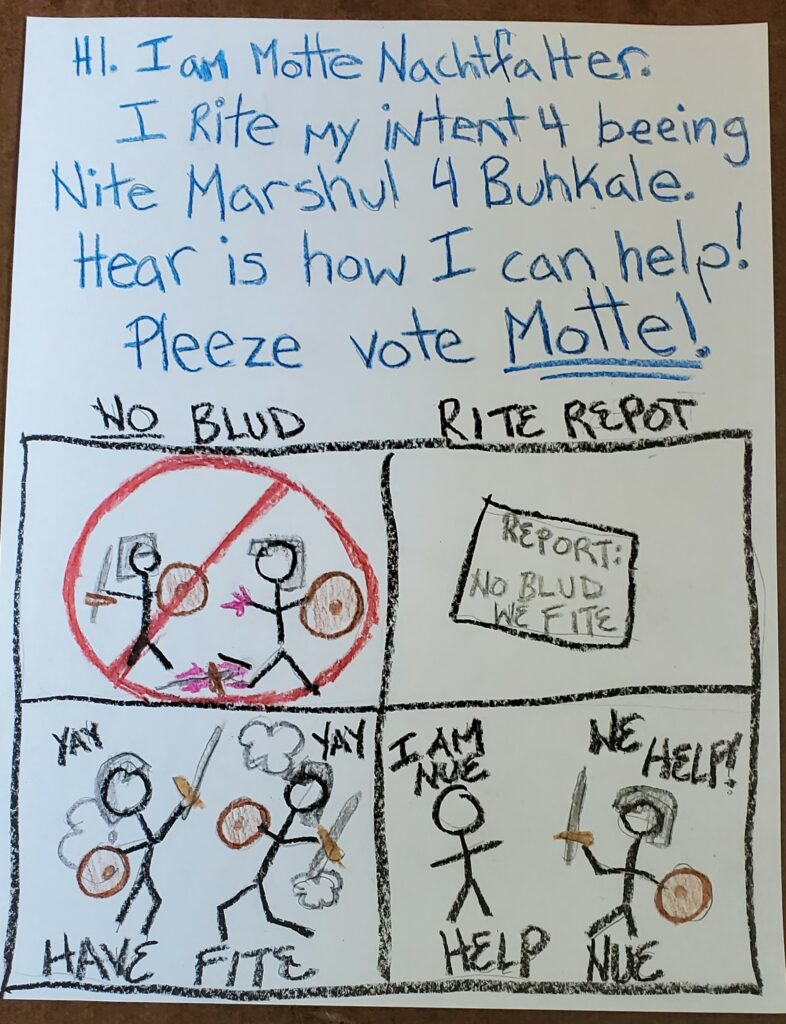 HI. I am Motte Nachtfalter.
I Rite my intent 4 beeing
Nite Marshul 4 Buhkale.
Hear is how I can help!
Pleeze vote Motte!
NO BLUD
RITE REPOT
REPORT:
NO BLUD
WE FITE
YAY
YAY
HAVE FITE
I AM
NUE
WE
HELP!
HELP NUE